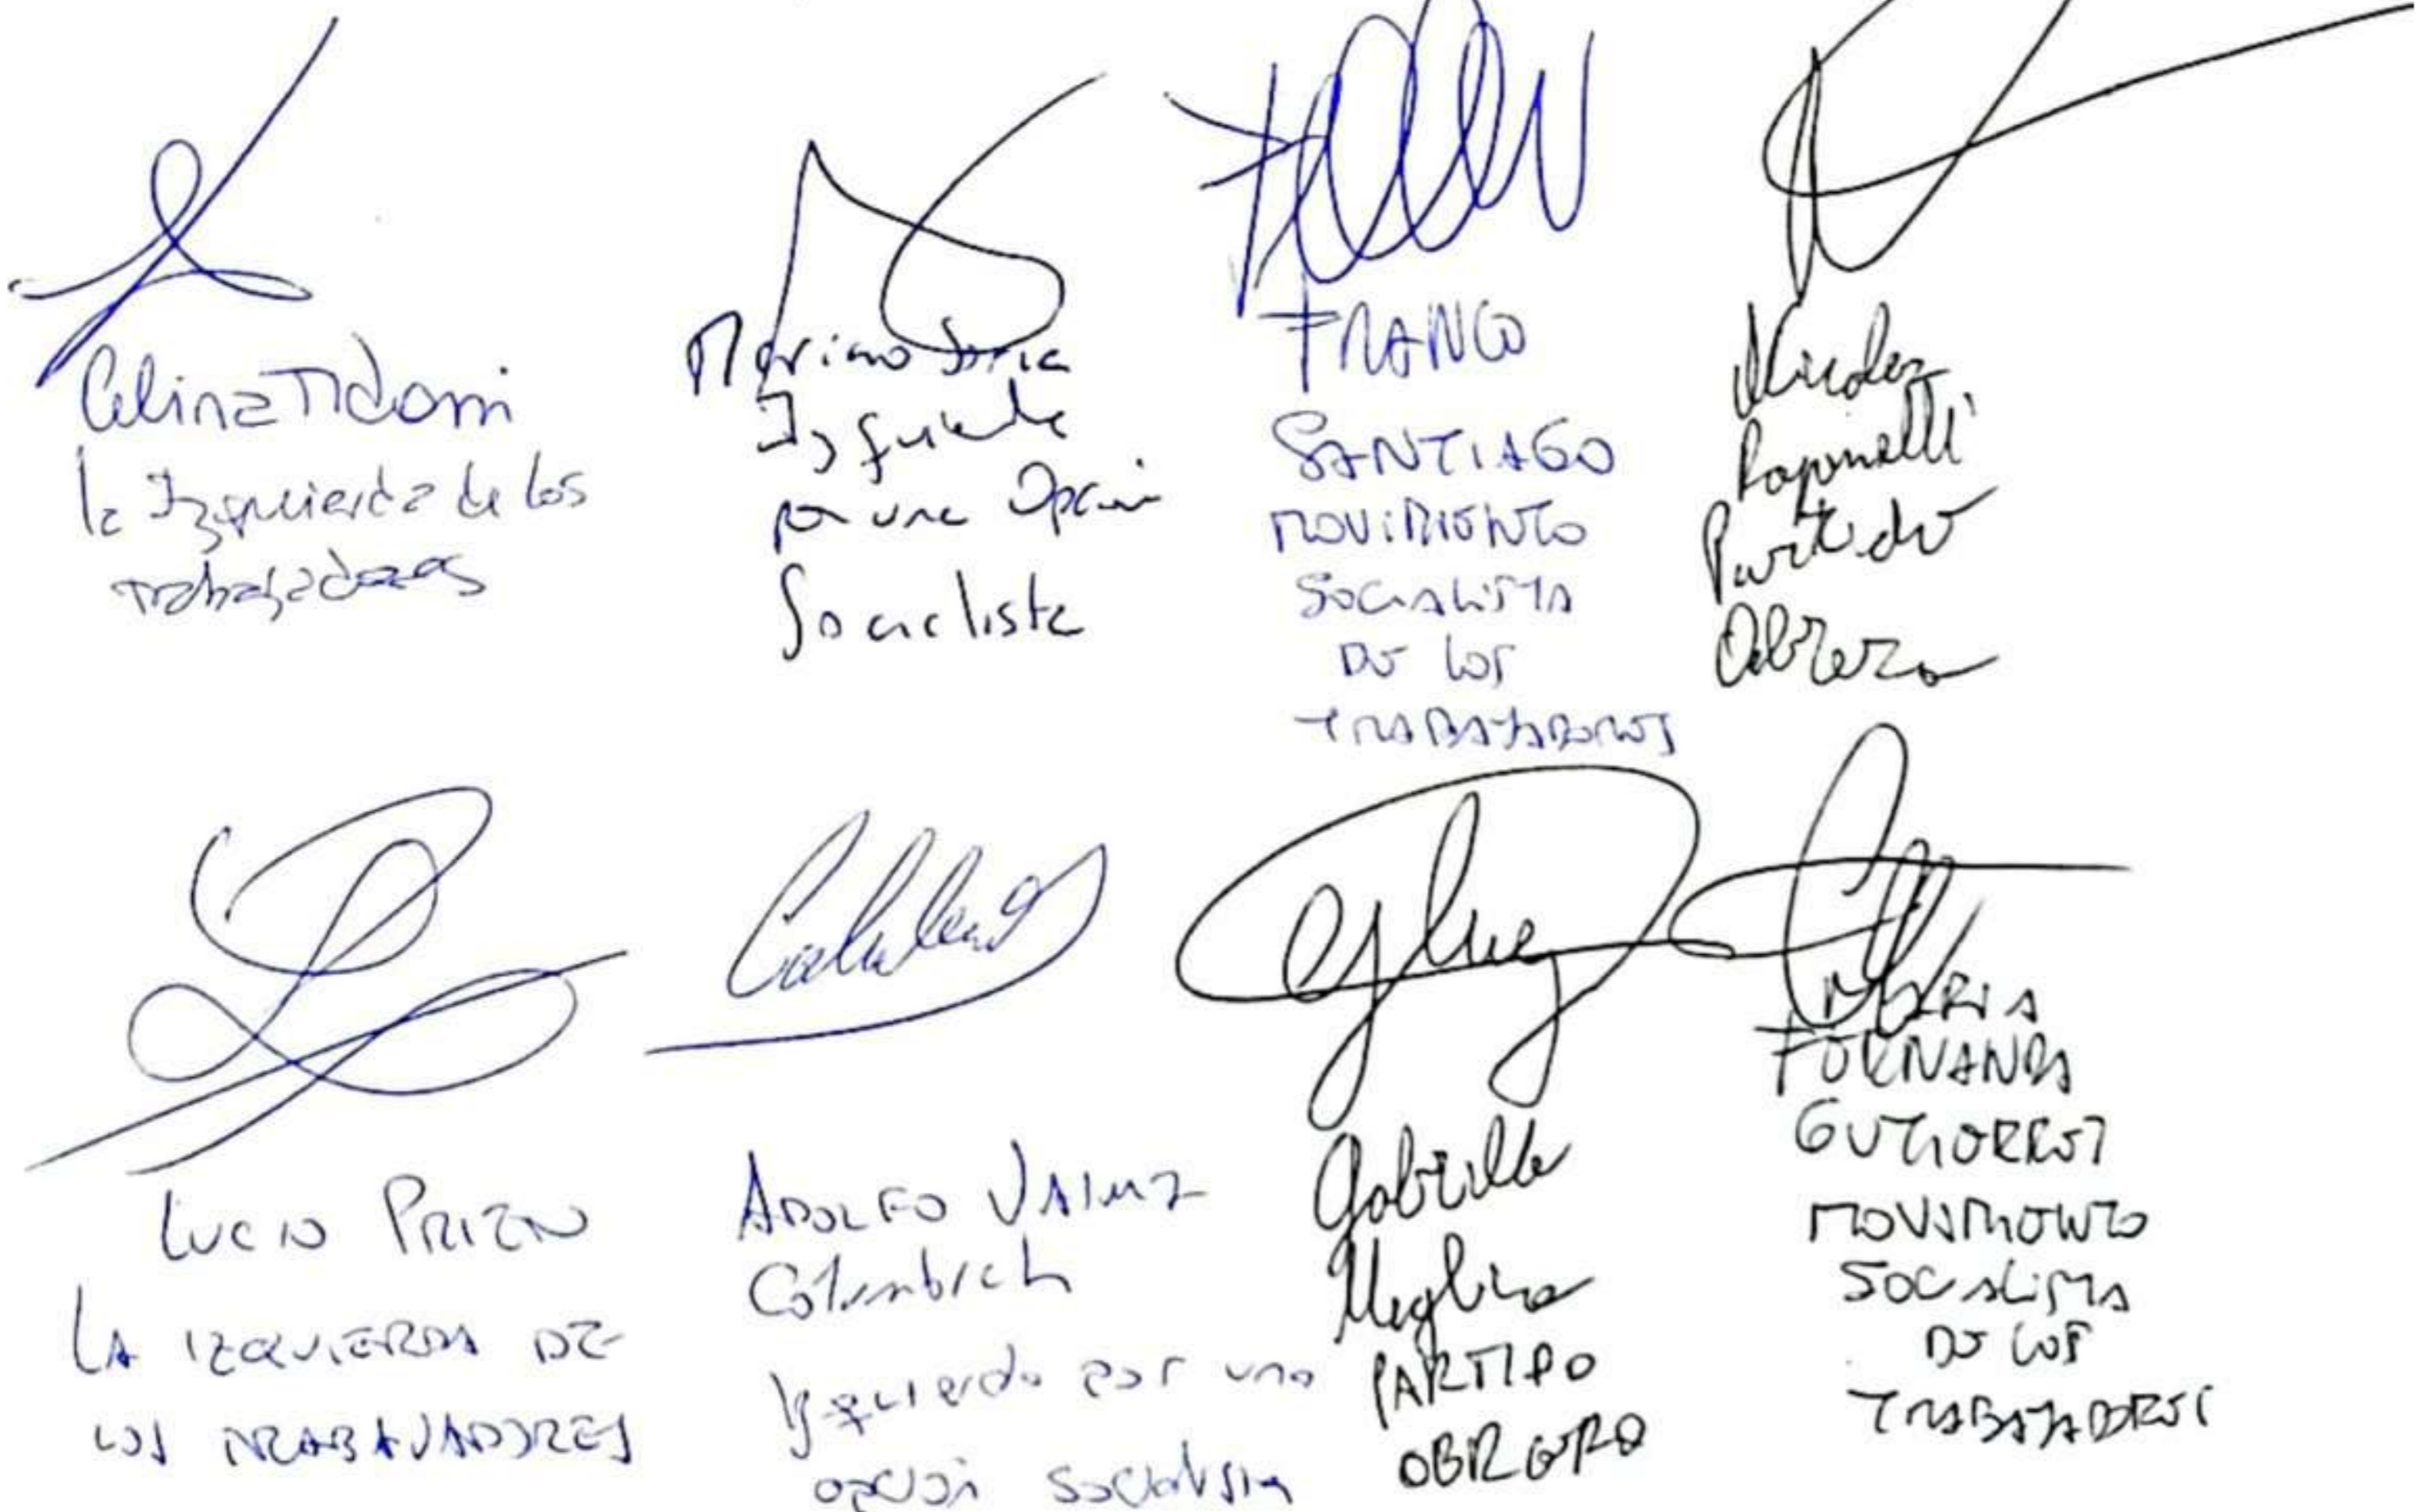 Celina Tidoni
la Izquierda de los
trabajadores
Mariano Soria
Izquierda
por una Opción
Socialista
FRANCO
SANTIAGO
MOVIMIENTO
SOCIALISTA
DE LOS
TRABAJADORES
Nicolas
Partido
Obrero
LUCIO PRIZN
LA IZQUIERDA DE
LOS TRABAJADORES
ADOLFO
Colombich
Izquierda por una
opción socialista
Gabriela
Meglino
PARTIDO
OBRERO
MARIA
FERNANDA
GUTIERREZ
MOVIMIENTO
SOCIALISTA
DE LOS
TRABAJADORES